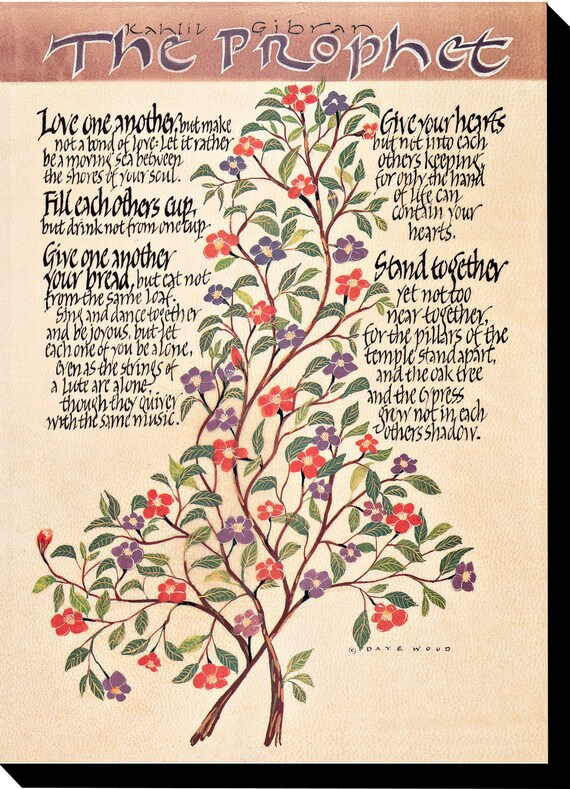 Kahlil Gibran
The Prophet
Love one another, but make
not a bond of love. Let it rather
be a moving sea between
the shores of your soul.
Fill each others cup,
but drink not from one cup.
Give one another
your bread, but eat not
from the same loaf.
Sing and dance together
and be joyous, but let
each one of you be alone,
even as the strings of
a lute are alone,
though they quiver
with the same music.
Give your hearts
but not into each
others keeping,
for only the hand
of life can
contain your
hearts.
Stand together
yet not too
near together,
for the pillars of the
temple stand apart,
and the oak tree
and the cypress
grow not in each
others shadow.
© DAVE WOOD